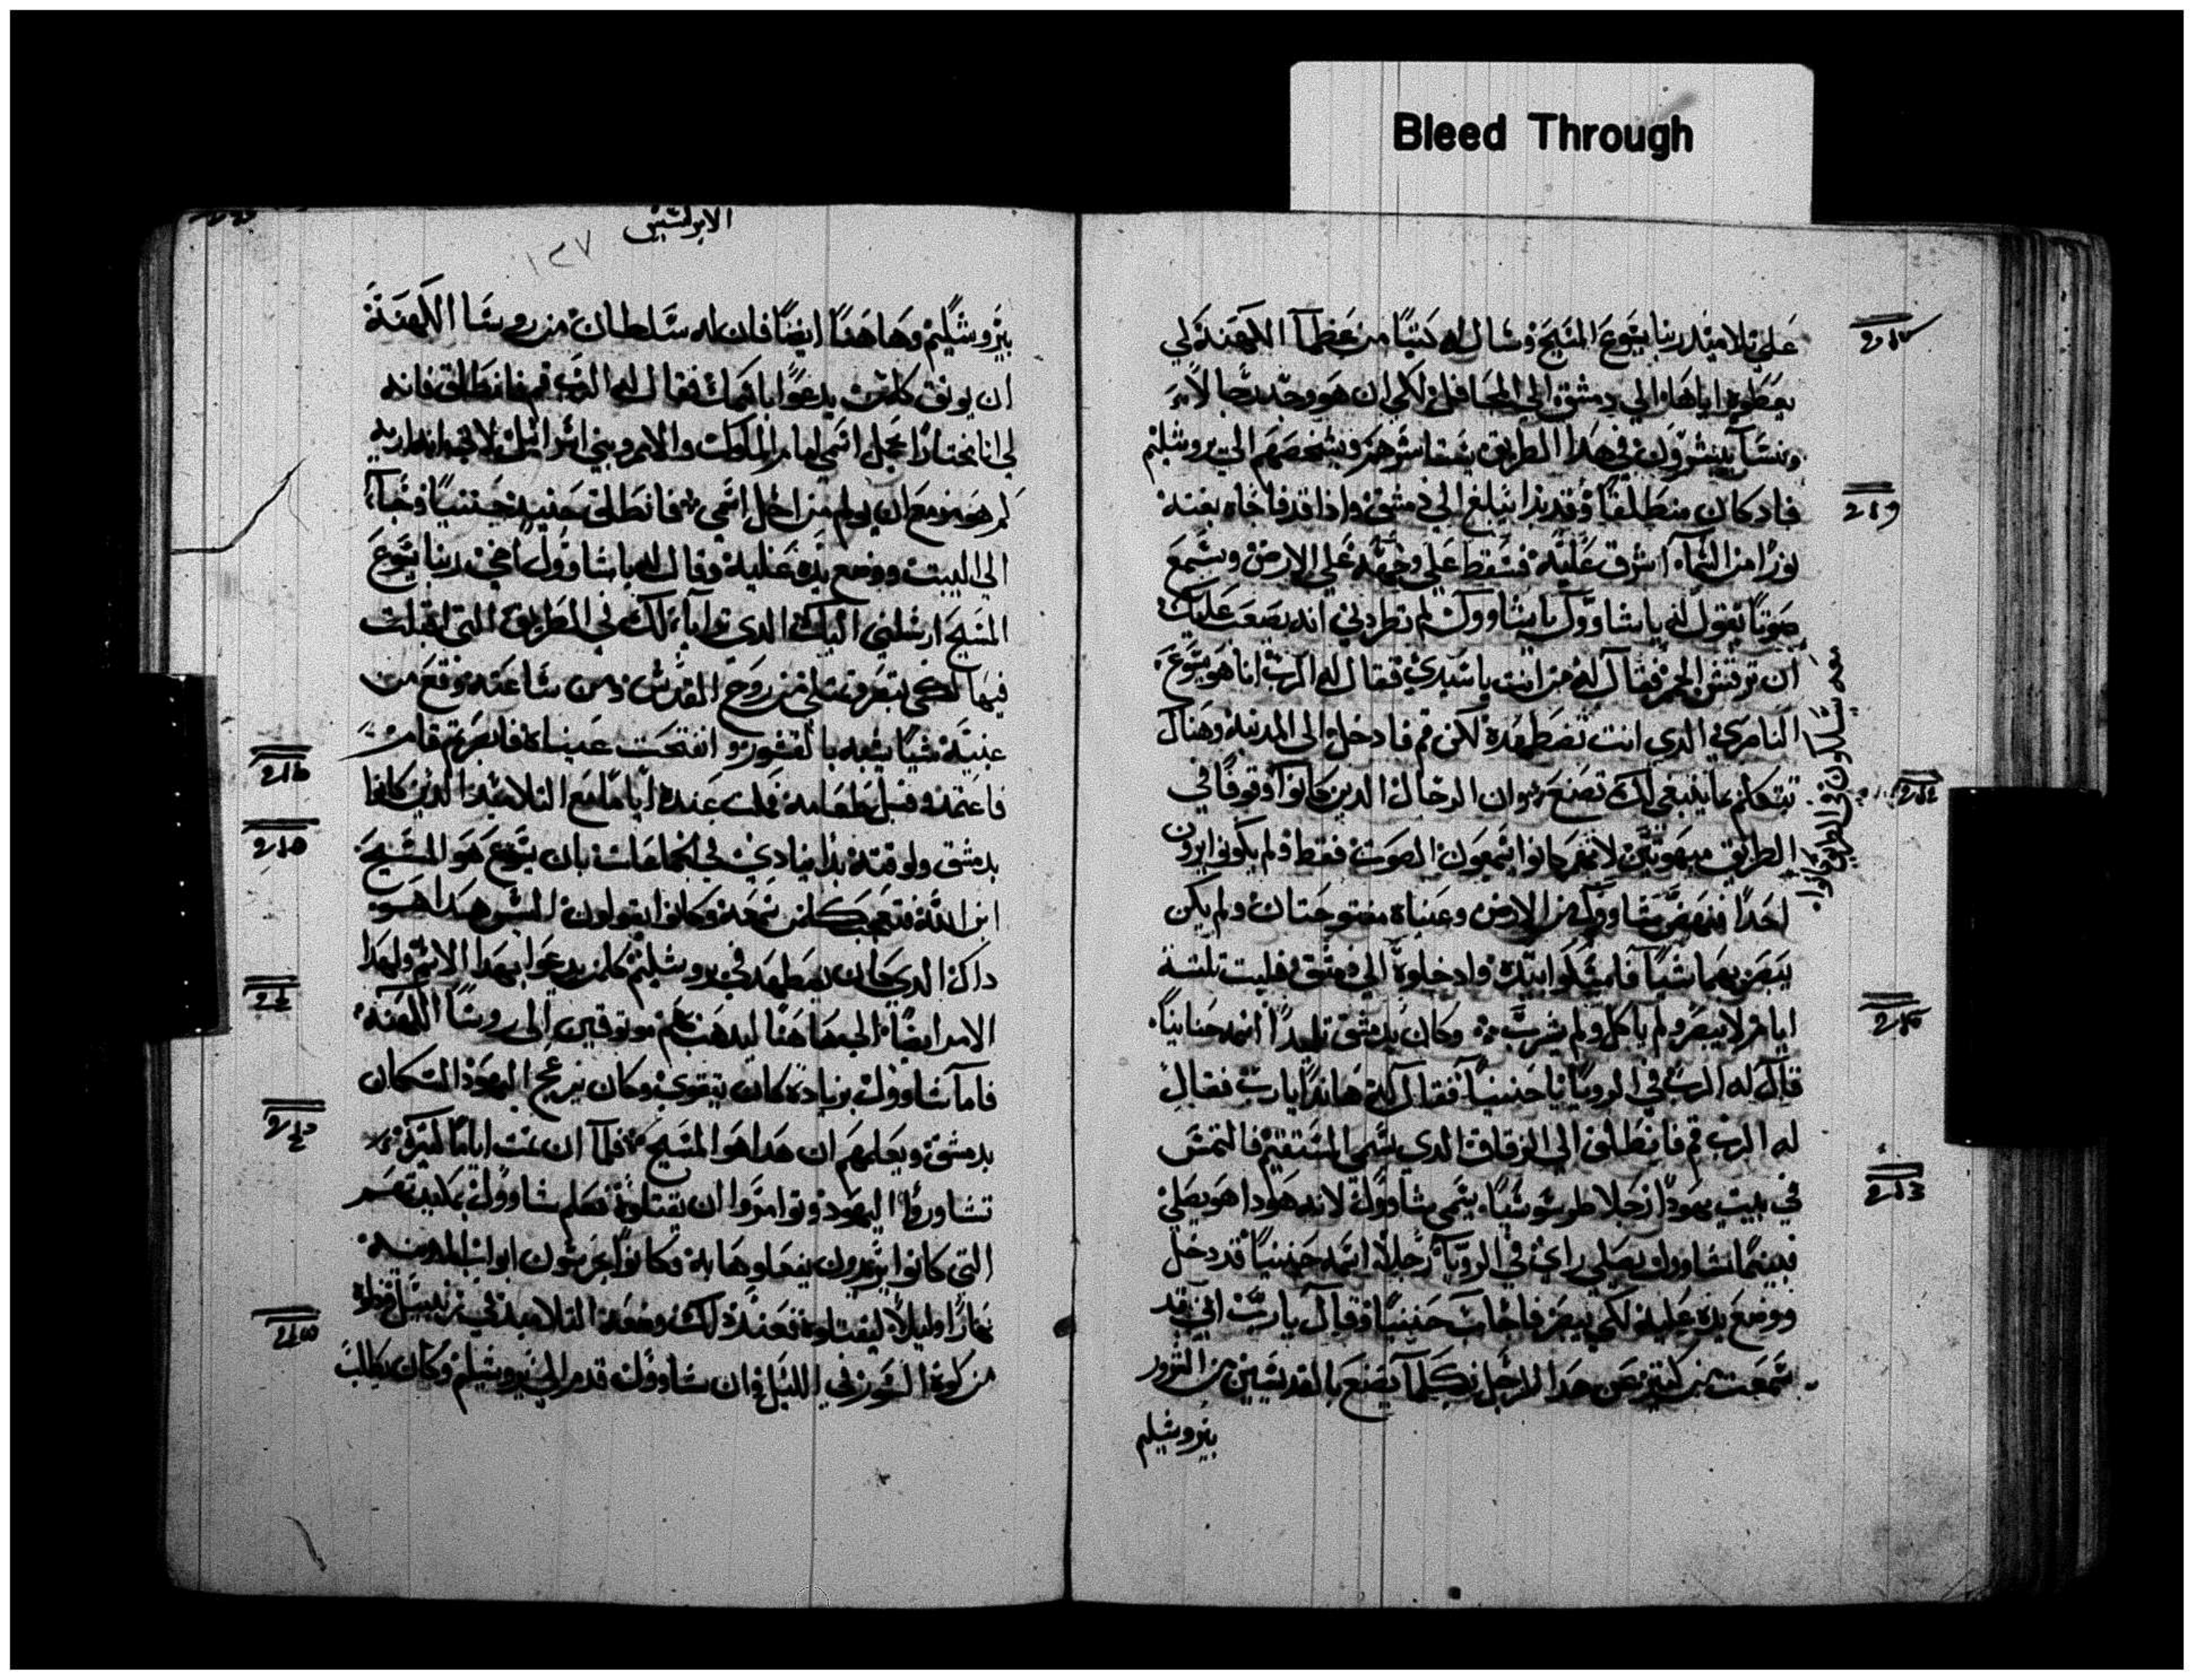 Bleed Through
على تلاميد ربنا يسوع المسيح وسال له كتبًا من عظما الكهنة لكي
يعطوه اياها الي دمشق الي المحافل لكي ان هو وجد رجالا
ونسآ يسيرون في هدا الطريق ويشخصهم الي يروشليم
فاد كان منطلقا وقد بدا يبلغ الي دمشق وادا قد فاجاه بغتة
نورًا من السماء اشرق عليه فسقط علي وجهه علي الارض وسمع
صوتًا يقول له يا شاوول يا شاوول لم تطردني انه يصعب عليك
ان ترفس فقال له من انت يا سيدي فقال له الرب انا هو يسوع
الناصري الدي انت تضطهده لكن قم فادخل الي المدينة وهناك
تتكلم بما ينبغي لك تصنع وان الرجال الدين كانوا وقوفًا في
معه يسلكون في الطريق كانوا
الطريق مبهوتين لانهم كانوا يسمعون الصوت فقط ولم يكونوا يرون
احدًا فنهض شاوول من الارض وعيناه مفتوحتان ولم يكن
يبصر بهما شيًا فامسكوا بيده وادخلوه الي دمشق فلبت تلتة
ايام لا يبصر ولم ياكل ولم يشرب وكان بدمشق تلميدًا اسمه حنانيا
قال له الرب في الرويا يا حنينيا فقال له هاندا يا رب فقال
له الرب قم فانطلق الي الزقاق الدي يسمي المستقيم فالتمس
في بيت يهودا رجلا طرسوسيا يسمي شاوول لانه هودا هو يصلي
فبينما شاوول يصلي راي في الرويا رجلا اسمه حنينيا قد دخل
ووضع يده عليه لكي يبصر فاجاب حنينيا وقال يا رب اني قد
سمعت من كتير عن هدا الرجل بكلما صنع بالقديسين من الشرور
بيروشليم
الابركسيس
١٢٧
بيروشليم وها هنا ايضًا فان له سلطان من روسا الكهنة
ان يوتق كلمن يدعوا باسمك فقال له الرب قم فانطلق فانه
لي انا مختارًا يحمل اسمي امام الملوك والامم وبني اسراييل لانني انا اريه
كم هو مزمع ان يولم من اجل اسمي فانطلق حينيد حنينيا وجاء
الي البيت ووضع يده عليه وقال له يا شاوول اخي ربنا يسوع
المسيح ارسلني اليك الدي ترايا لك في الطريق التي اقبلت
فيها لكي تبصر وتمتلي من روح القدس ومن ساعته وقع من
عينيه شيًا يشبه بالقشور وانفتحت عيناه فابصر تم قام
فاعتمد وقبل طعامه فمكت عنده ايامًا مع التلاميد الدين كانوا
بدمشق ولوقته بدا ينادي في الجماعات بان يسوع هو المسيح
ابن الله فتعجب كلمن سمعه وكانوا يقولون اليس هدا هو
داك الدي كان يضطهد في يروشليم كلمن يدعوا بهدا الاسم ولهدا
الامر ايضًا الي هاهنا ليدهب بهم موتوقين الي روسا الكهنة
فاما شاوول بزيادة كان يتقوي وكان يزعج اليهود السكان
بدمشق ويعلمهم ان هدا هو المسيح فلما ان تمت ايامًا كتيرة
تشاوروا اليهود وتوامروا ان يقتلوه فعلم شاوول بمكيدتهم
التي كانوا يريدون يفعلوها به وكانوا يحرسون ابواب المدينة
نهارًا وليلًا ليقتلوه فعند دلك وضعه التلاميد في زنبيل
من كوة السور في الليل وان شاوول قدم الي يروشليم وكان يطلب